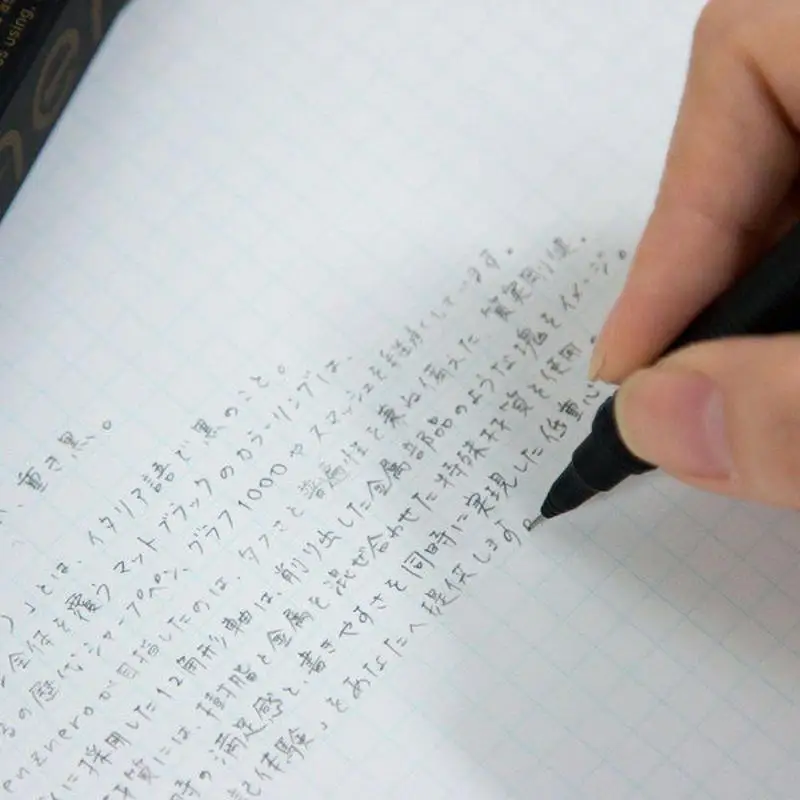 using,
重き黒。
」とは、イタリア語で黒のこと。
全体を覆うマットブラックのカラーリングは、
の歴代シャープペン、グラフ1000やスマッシュを継承しています。
enzneroが目指したのは、タフさと普遍性を兼ね備えた、質実剛健。
に採用した12角形軸は、削り出した金属部品のような塊をイメージ。
材質には、樹脂と金属を混ぜ合わせた特殊材質を使用。
時の満足感と、書きやすさを同時に実現した低重心
記体験」をあなたへ提供します。